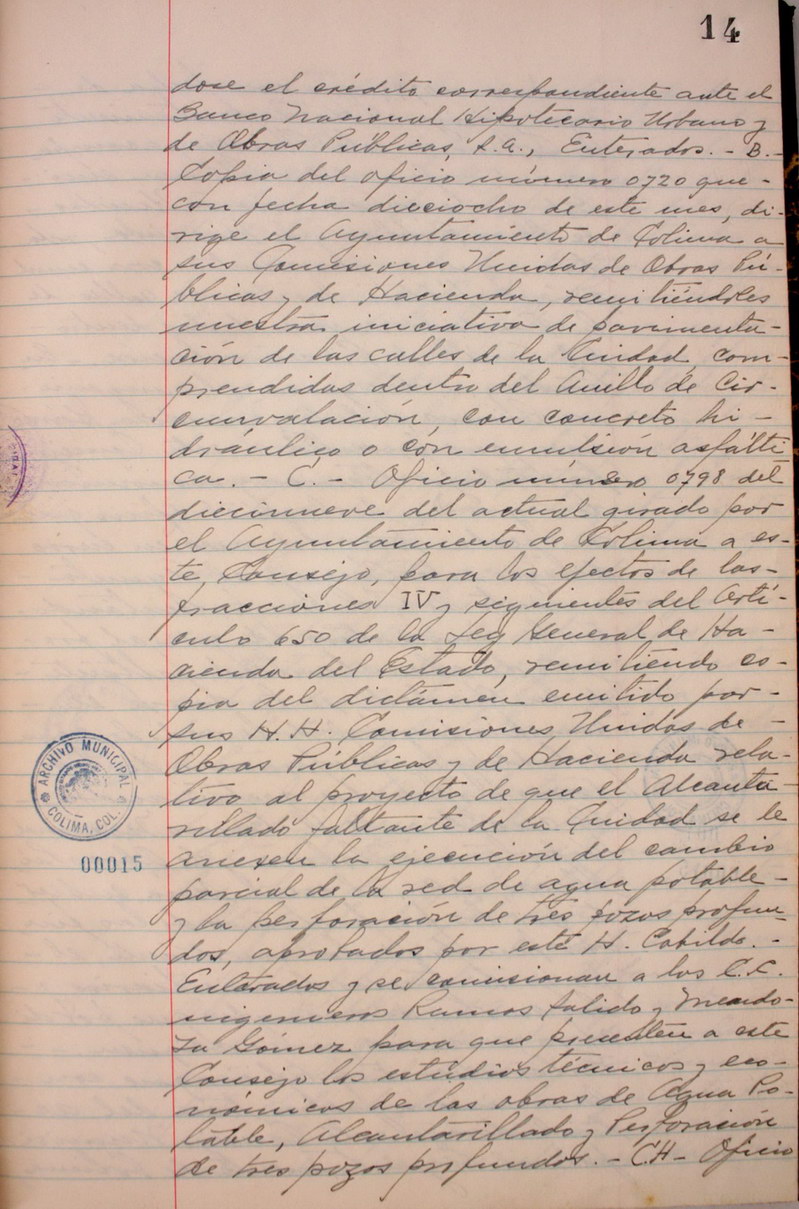 14
dose el crédito correspondiente ante el
Banco Nacional Hipotecario Urbano y
de Obras Públicas, S.A., Enterados. - B. -
Copia del oficio número 0720 que -
con fecha dieciocho de este mes, di-
rige el Ayuntamiento de Colima a
sus Comisiones Unidas de Obras Pú-
blicas y de Hacienda, remitiéndoles
nuestra iniciativa de pavimenta-
ción de las calles de la Ciudad, com-
prendidas dentro del Anillo de Cir-
cunvalación, con concreto hi-
dráulico o con emulsión asfálti
ca. - C. - Oficio número 0798 del
diecinueve del actual girado por
el Ayuntamiento de Colima a es-
te Consejo, para los efectos de las-
fracciones IV y siguientes del Artí-
culo 650 de la Ley General de Ha-
cienda del Estado, remitiendo co-
pia del dictámen emitido por-
sus H.H. Comisiones Unidas de -
Obras Públicas y de Hacienda rela-
tivo al proyecto de que el Alcanta-
rillado faltante de la Ciudad se le
anexen la ejecución del cambio
parcial de la red de agua potable -
y la perforación de tres pozos profun-
dos, aprobados por este H. Cabildo. -
Enterados y se comisionan a los C.C.
ingenieros Ramos Salido y Mendo-
za Gómez para que presenten a este
Consejo los estudios técnicos y eco-
nómicos de las obras de Agua Po-
table, Alcantarillado y Perforación
de tres pozos profundos. - CH - Oficio
ARCHIVO MUNICIPAL
COLIMA, COL.
00015